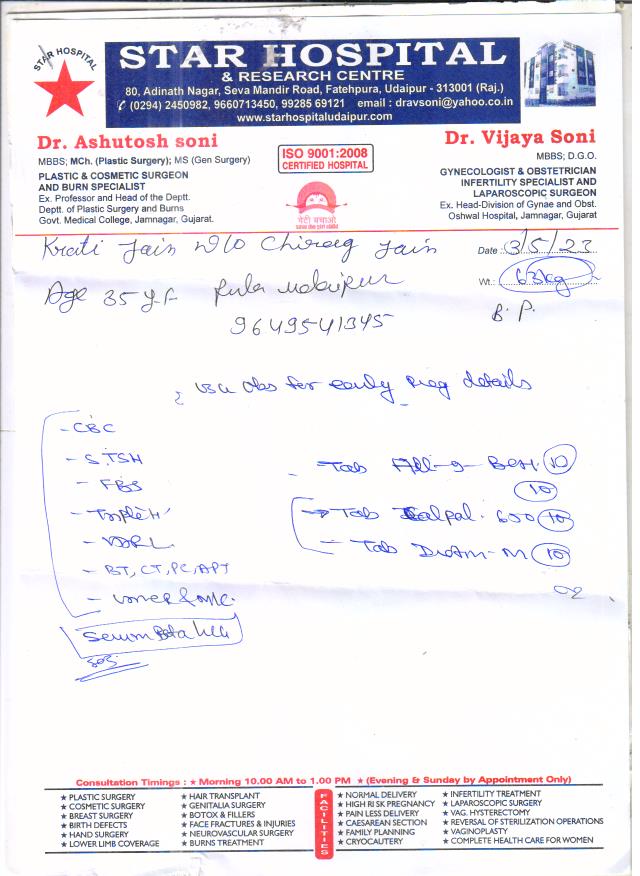 STAR HOSPITAL
STAR HOSPITAL
& RESEARCH CENTRE
80, Adinath Nagar, Seva Mandir Road, Fatehpura, Udaipur - 313001 (Raj.)
(0294) 2450982, 9660713450, 99285 69121 email : dravsoni@yahoo.co.in
www.starhospitaludaipur.com
Dr. Ashutosh soni
MBBS; MCh. (Plastic Surgery); MS (Gen Surgery)
PLASTIC & COSMETIC SURGEON
AND BURN SPECIALIST
Ex. Professor and Head of the Deptt.
Deptt. of Plastic Surgery and Burns
Govt. Medical College, Jamnagar, Gujarat.
ISO 9001:2008
CERTIFIED HOSPITAL
बेटी बचाओ
Dr. Vijaya Soni
MBBS; D.G.O.
GYNECOLOGIST & OBSTETRICIAN
INFERTILITY SPECIALIST AND
LAPAROSCOPIC SURGEON
Ex. Head-Division of Gynae and Obst.
Oshwal Hospital, Jamnagar, Gujarat
Krati Jain W/o Chirag Jain
Date : 3/5/23
Wt.: 63kg
Age 35 y.f
9649541345
B.P.
obs for early preg details
- CBC
- S.TSH
- FBS
- Triple H
- VDRL
- BT, CT, PC, APT
- urine R & M/C.
Serum Beta hCG
SOS
- Tab 10
10
Tab Calpal 650 10
- Tab 10
Consultation Timings : ★ Morning 10.00 AM to 1.00 PM ★ (Evening & Sunday by Appointment Only)
★ PLASTIC SURGERY
★ COSMETIC SURGERY
★ BREAST SURGERY
★ BIRTH DEFECTS
★ HAND SURGERY
★ LOWER LIMB COVERAGE
★ HAIR TRANSPLANT
★ GENITALIA SURGERY
★ BOTOX & FILLERS
★ FACE FRACTURES & INJURIES
★ NEUROVASCULAR SURGERY
★ BURNS TREATMENT
FACILITIES
★ NORMAL DELIVERY
★ HIGH RISK PREGNANCY
★ PAIN LESS DELIVERY
★ CAESAREAN SECTION
★ FAMILY PLANNING
★ CRYOCAUTERY
★ INFERTILITY TREATMENT
★ LAPAROSCOPIC SURGERY
★ VAG. HYSTERECTOMY
★ REVERSAL OF STERILIZATION OPERATIONS
★ VAGINOPLASTY
★ COMPLETE HEALTH CARE FOR WOMEN